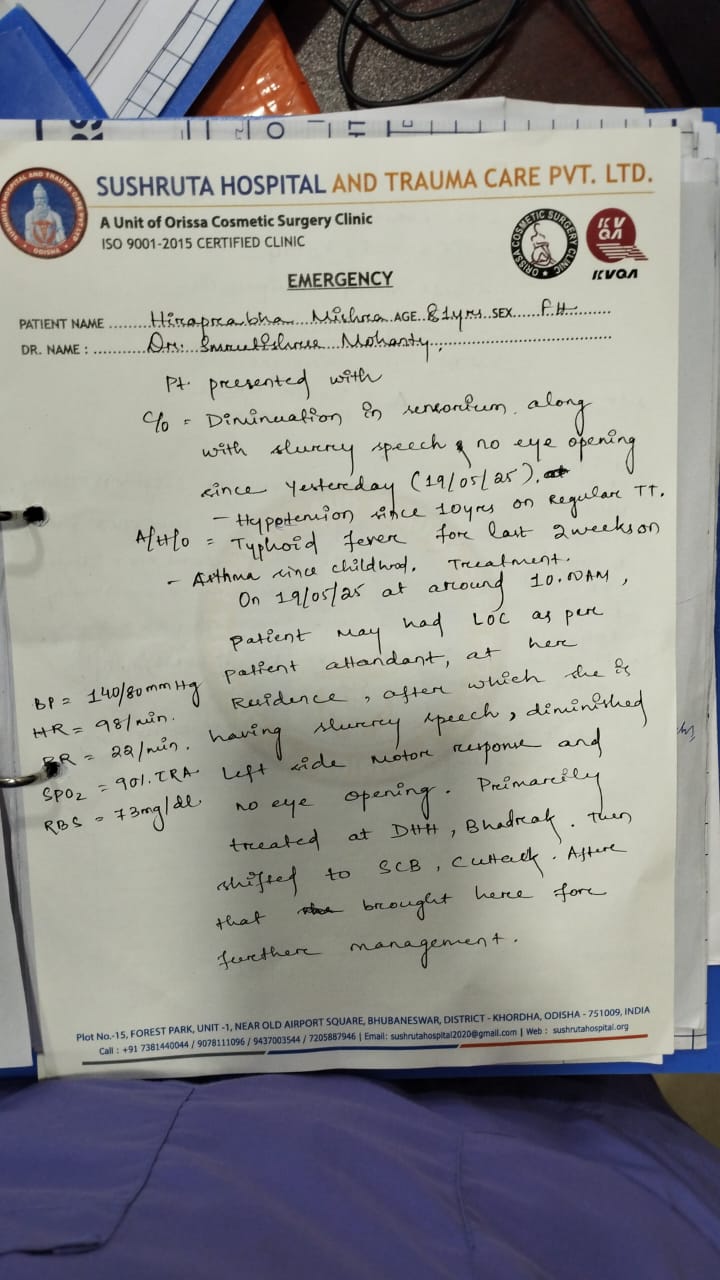 SUSHRUTA HOSPITAL AND TRAUMA CARE PVT. LTD.
A Unit of Orissa Cosmetic Surgery Clinic
ISO 9001-2015 CERTIFIED CLINIC
SUSHRUTA HOSPITAL AND TRAUMA CARE PVT LTD
ODISHA
ORISSA COSMETIC SURGERY CLINIC
KVQA
EMERGENCY
PATIENT NAME Hiraprabha Mishra AGE. 81yrs. SEX F
DR. NAME : Dr. Mohanty
Pt. presented with
c/o = Diminuation in sensorium along
with slurry speech & no eye opening
since yestereday (19/05/25).
- Hypotension since 10yrs on Regulare TT.
A/H/o = Typhoid fever fore last 2weeks on
- Asthma since childhood. Treatment.
On 19/05/25 at around 10.00AM,
patient may had LOC as pere
patient attendant, at here
Residence, after which she is
having slurry speech, diminished
left side motor response and
no eye opening. Preimarcily
treated at DHH, Bhadrak. Then
shifted to SCB, Cuttack. Aftere
that brought here fore
further management.
BP = 140/80mmHg
HR = 98/min.
RR = 22/min.
SPO2 = 90%.TRA.
RBS = 73mg/dl.
Plot No.-15, FOREST PARK, UNIT -1, NEAR OLD AIRPORT SQUARE, BHUBANESWAR, DISTRICT - KHORDHA, ODISHA - 751009, INDIA
Call : +91 7381440044 / 9078111096 / 9437003544 / 7205887946 | Email: sushrutahospital2020@gmail.com | Web : sushrutahospital.org